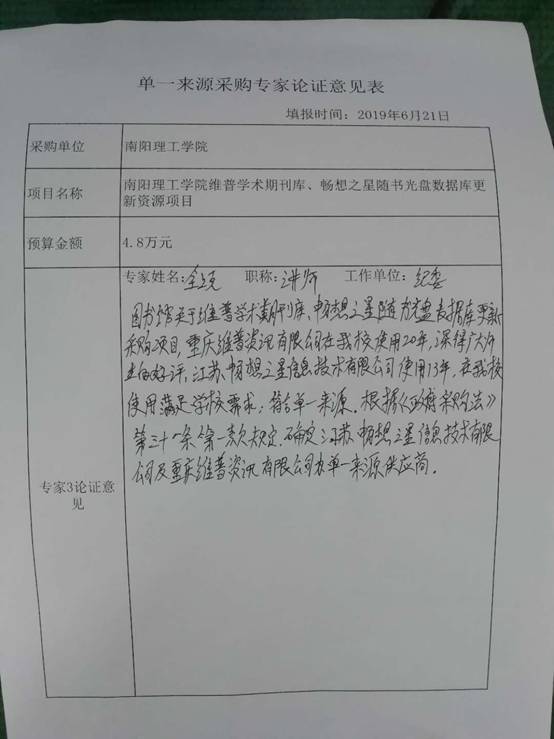 单一来源采购专家论证意见表
填报时间：2019年6月21日
采购单位
南阳理工学院
项目名称
南阳理工学院维普学术期刊库、畅想之星随书光盘数据库更
新资源项目
预算金额
4.8万元
专家3论证意
见
专家姓名： 职称：讲师 工作单位：纪委
图书馆关于维普学术期刊库、畅想之星随书光盘数据库更新
采购项目，重庆维普资讯有限公司在我校使用20年，深得广大师
生的好评，江苏畅想之星信息技术有限公司使用13年，在我校
使用满足学校要求；符合单一来源。根据《政府采购法》
第三十一条第一款规定，确定江苏畅想之星信息技术有限
公司及重庆维普资讯有限公司为单一来源供应商。